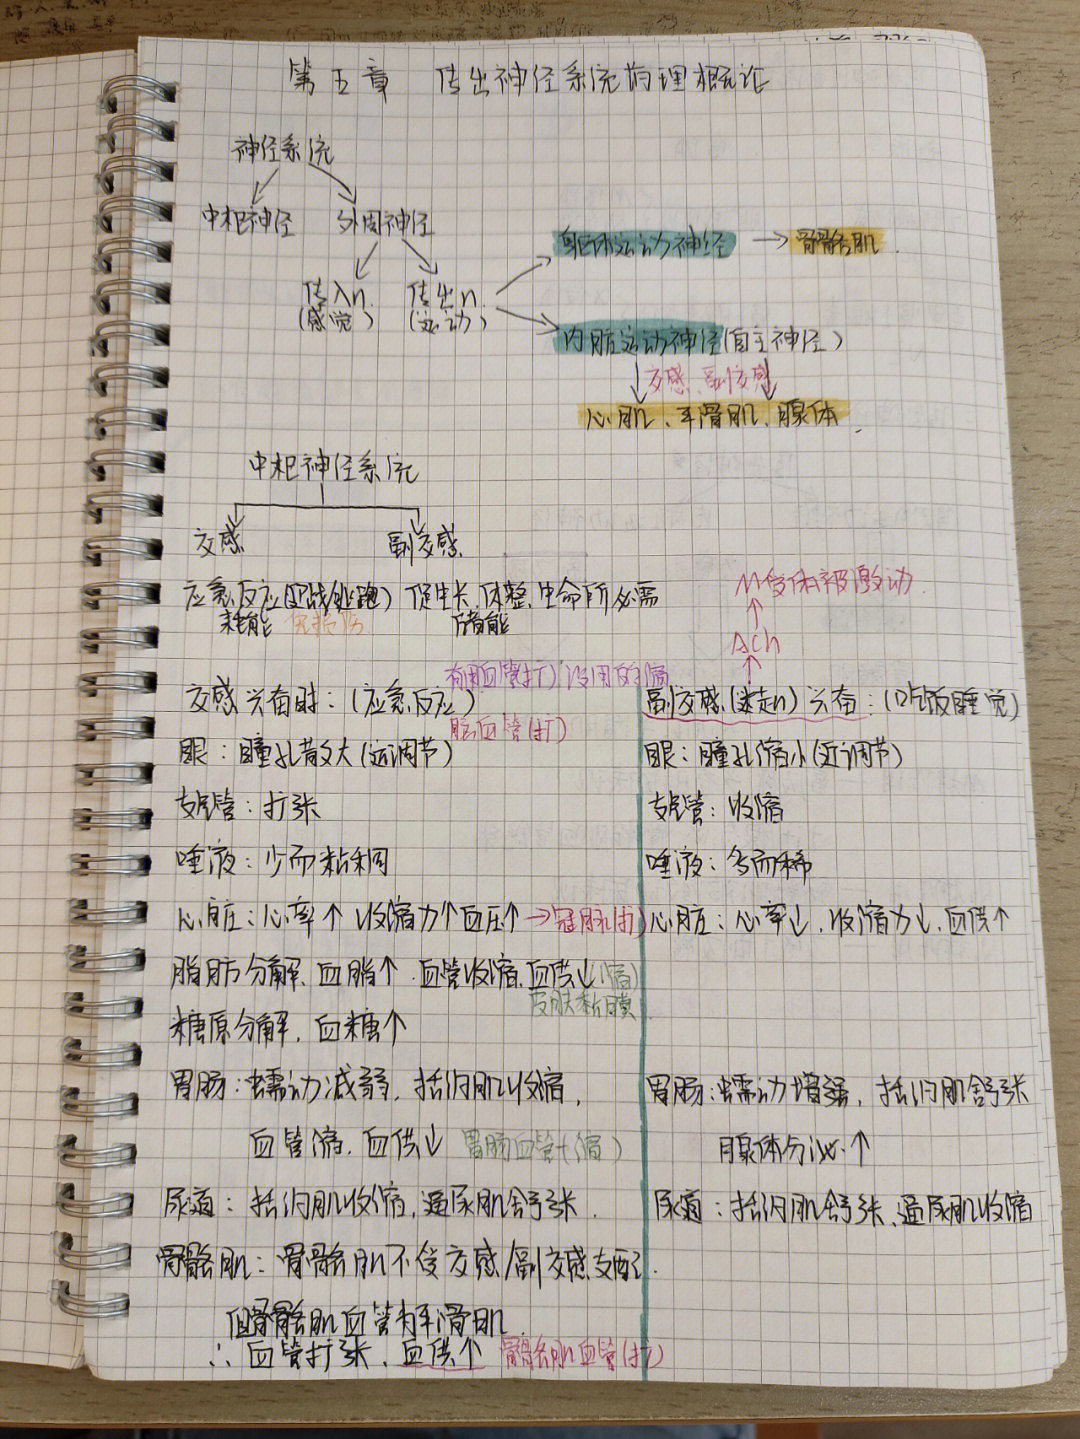 第五章 传出神经系统药理概论
神经系统
中枢神经 外周神经
躯体运动神经 → 骨骼肌.
传入n. 传出n
(感觉) (运动)
内脏运动神经(自主神经)
交感、副交感
心肌、平滑肌、腺体.
中枢神经系统
交感 副交感.
应急反应(迎战/逃跑) 促生长、休整、生命所必需
耗能 储能
M受体被激动
ACh
有用血管扩),没用的缩
交感兴奋时:(应急反应) 副交感(迷走n)兴奋:(吃饭睡觉)
脑血管(扩)
眼:瞳孔散大(远调节) 眼:瞳孔缩小(近调节)
支气管:扩张 支气管:收缩
唾液:少而粘稠 唾液:多而稀
心脏:心率↑ 收缩力↑血压↑→冠脉(扩) 心脏:心率↓.收缩力↓.血供↑
脂肪分解、血脂↑.血管收缩、血供↓(缩)
皮肤黏膜
糖原分解、血糖↑
胃肠:蠕动减弱,括约肌收缩, 胃肠:蠕动增强,括约肌舒张
血管缩、血供↓ 胃肠血管(缩) 腺体分泌↑
尿道:括约肌收缩,逼尿肌舒张. 尿道:括约肌舒张、逼尿肌收缩
骨骼肌:骨骼肌不受交感/副交感支配.
但骨骼肌血管为平滑肌.
∴血管扩张、血供↑ 骨骼肌血管(扩)